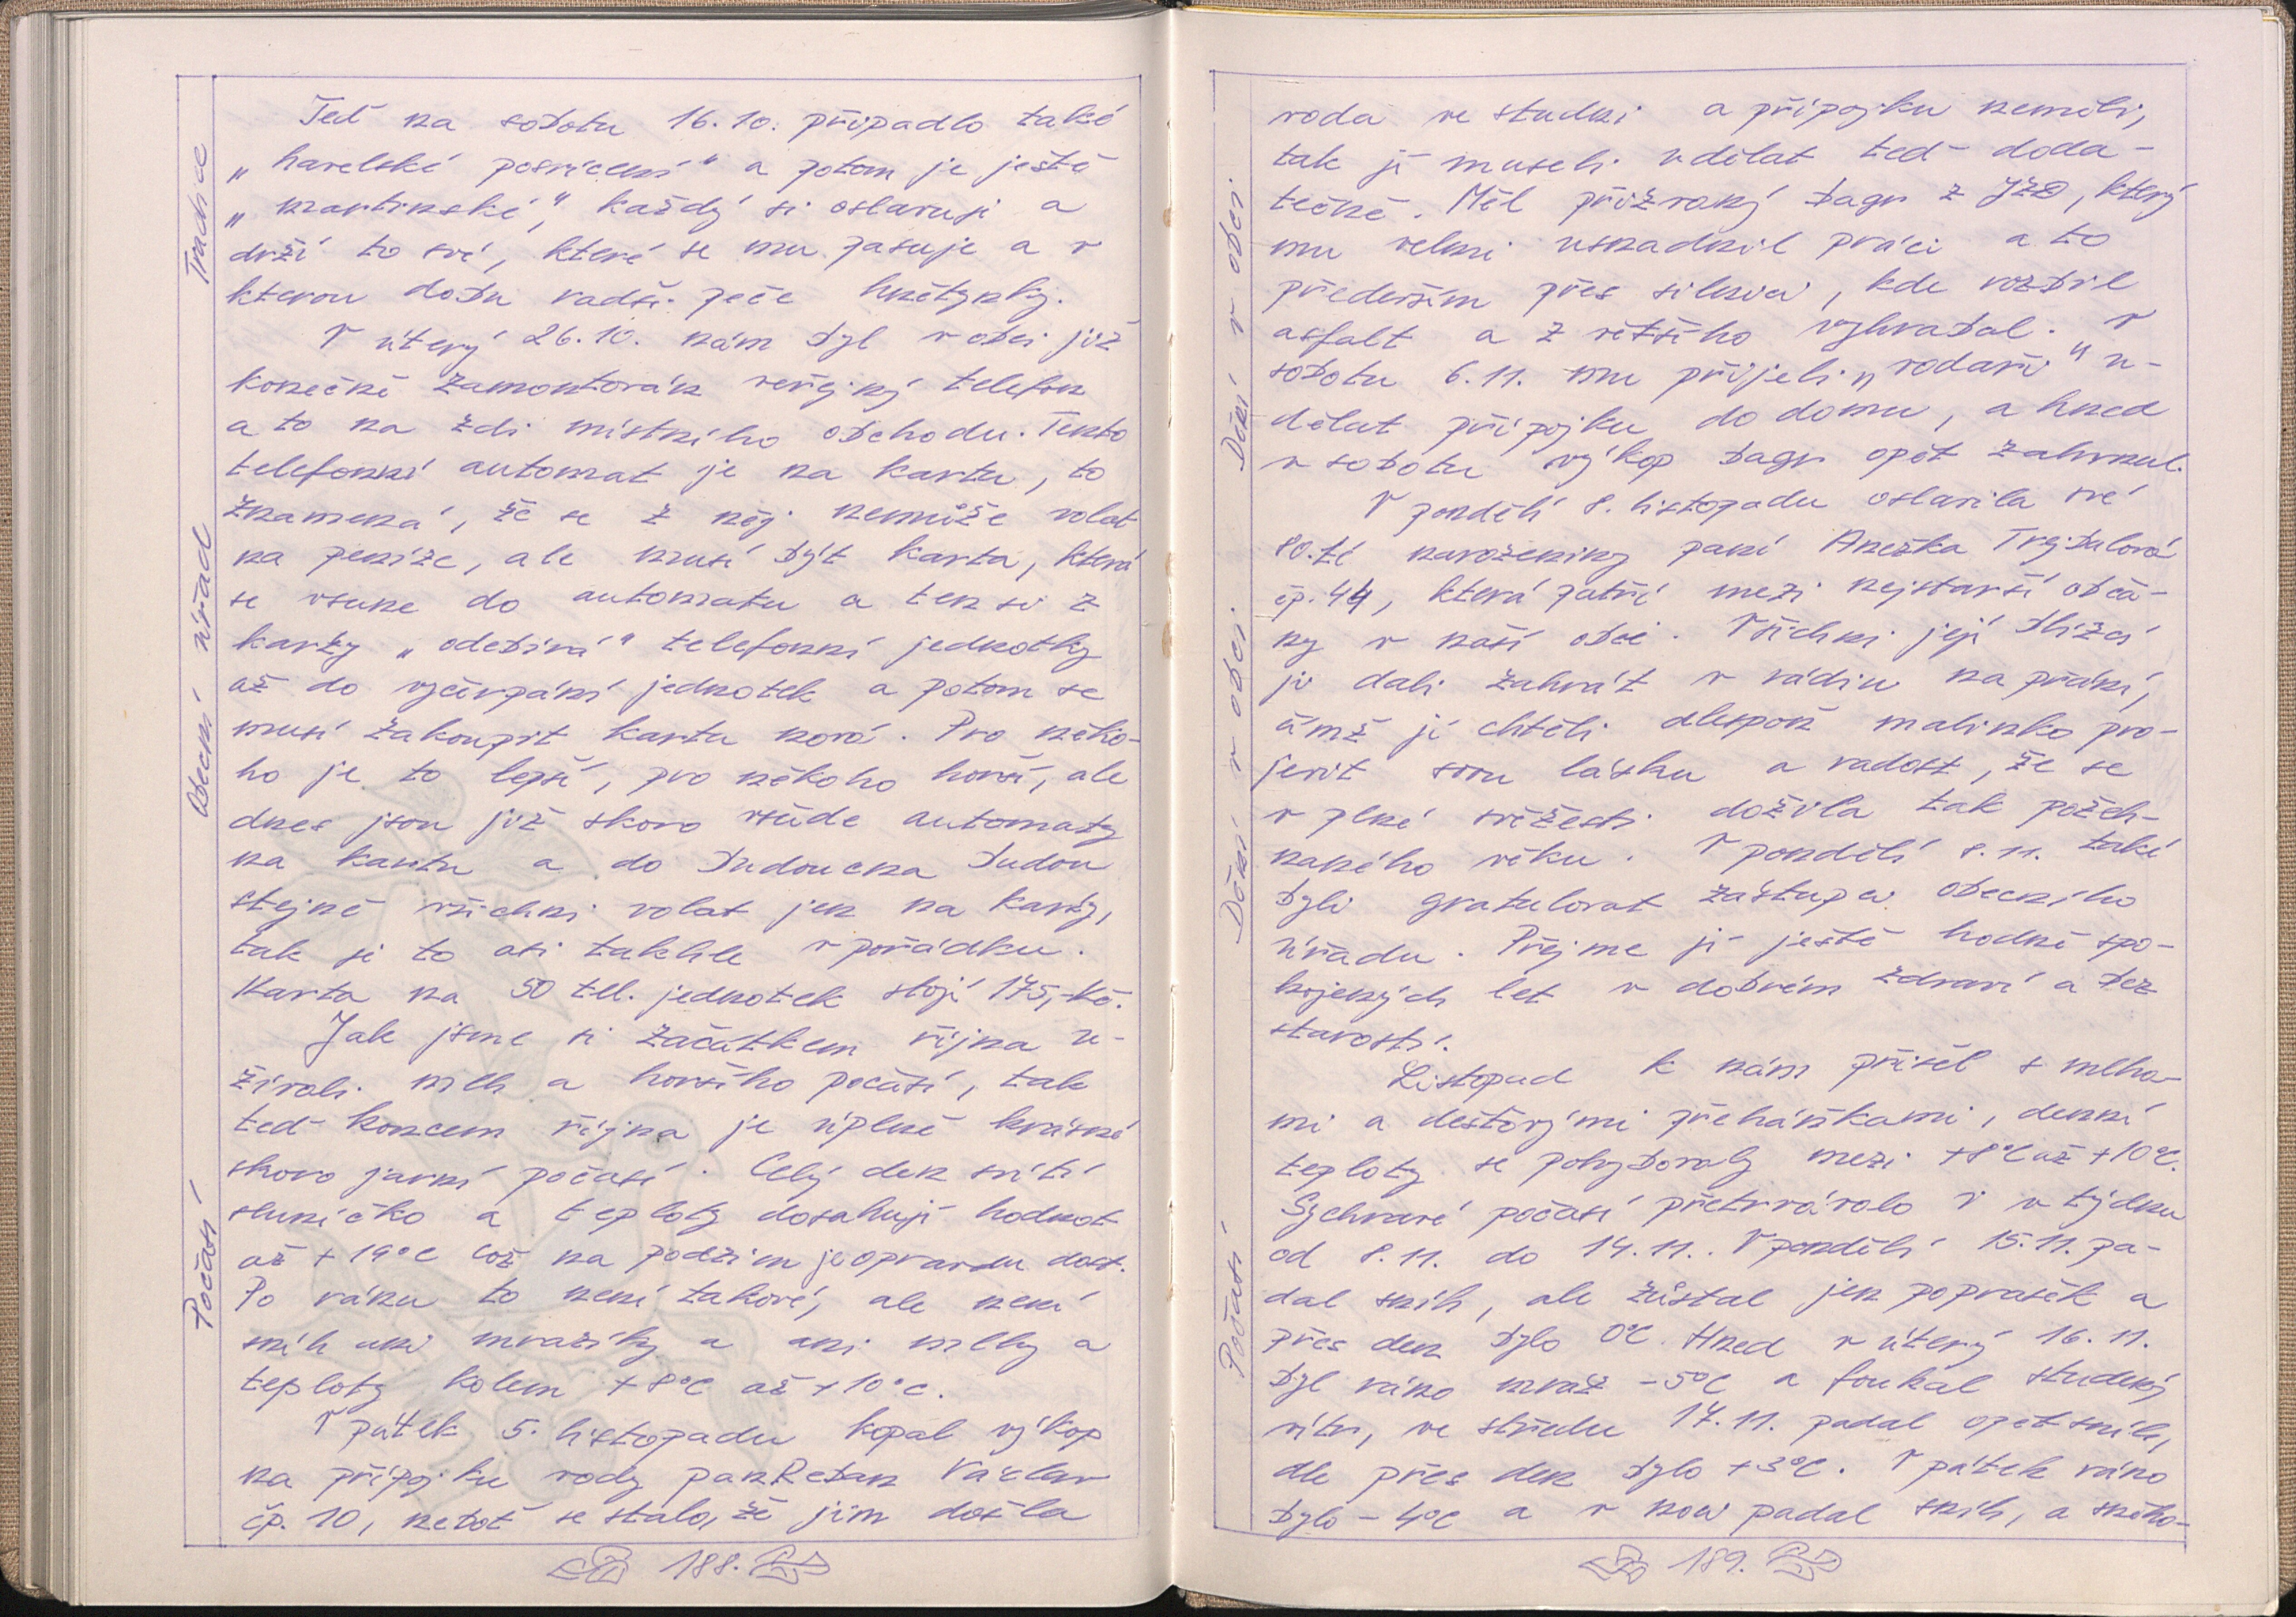 Tradice
Obecní úřad
Počasí
Teď na sobotu 16.10. připadlo také
„havelské posvícení" a potom je ještě
„martinské", každý si oslavuji a
drží to své, které se mu pasuje a v
kterou dobu radši peče hnětynky.
V úterý 26.10. nám byl v obci již
konečně zamontorán veřejný telefon
a to na zdi místního obchodu. Tento
telefonní automat je na kartu, to
znamená, že se z něj nemůže volat
na peníze, ale musí být karta, která
se vsune do automatu a ten si z
karty „odebírá" telefonní jednotky
až do vyčerpání jednotek a potom se
musí zakoupit karta nová. Pro něko-
ho je to lepší, pro někoho horší, ale
dnes jsou již skoro všude automaty
na kartu a do budoucna budou
stejně všichni volat jen na karty,
tak je to asi takhle v pořádku.
Karta na 50 tel. jednotek stojí 175,-Kč.
Jak jsme si začátkem října u-
žívali mlh a horšího počasí, tak
teď koncem října je úplně krásné
skoro jarní počasí. Celý den svítí
sluníčko a teploty dosahují hodnot
až +19°C což na podzim je opravdu dost.
Po ránu to není takové, ale není
sníh ani mrazíky a ani mlhy a
teploty kolem +8°C až +10°C.
V pátek 5. listopadu kopal výkop
na přípojku vody pan Reban Václav
čp. 10, neboť se stalo, že jim došla
188.
Dění v obci
Dění v obci
Počasí
voda ve studni a přípojku neměli,
tak jí museli udělat teď doda-
tečně. Měl přizvaný bagr z JZD, který
mu velmi usnadnil práci a to
především přes silnici, kde rozbil
asfalt a z většího vyhrabal. V
sobotu 6.11. mu přijeli „vodaři" u-
dělat přípojku do domu, a hned
v sobotu výkop bagr opět zahrnul.
V pondělí 8. listopadu oslavila své
80.té narozeniny paní Anežka Trybulová
čp. 44, která patří mezi nejstarší obča-
ny v naší obci. Všichni její blízcí
jí dali zahrát v rádiu na přání,
čímž jí chtěli alespoň malinko pro-
jevit svou lásku a radost, že se
v plné svěžesti dožila tak požeh-
naného věku. V pondělí 8.11. také
byli gratulovat zástupci obecního
úřadu. Přejme jí ještě hodně spo-
kojených let v dobrém zdraví a bez
starostí.
Listopad k nám přišel s mlha-
mi a dešťovými přeháňkami, denní
teploty se pohybovaly mezi +8°C až +10°C.
Sychravé počasí přetrvávalo i v týdnu
od 8.11. do 14.11.. V pondělí 15.11. pa-
dal sníh, ale zůstal jen poprašek a
přes den bylo 0°C. Hned v úterý 16.11.
byl ráno mráz -5°C a foukal studený
vítr, ve středu 17.11. padal opět sníh,
ale přes den bylo +3°C. V pátek ráno
bylo -4°C a v noci padal sníh, a sněho-
189.